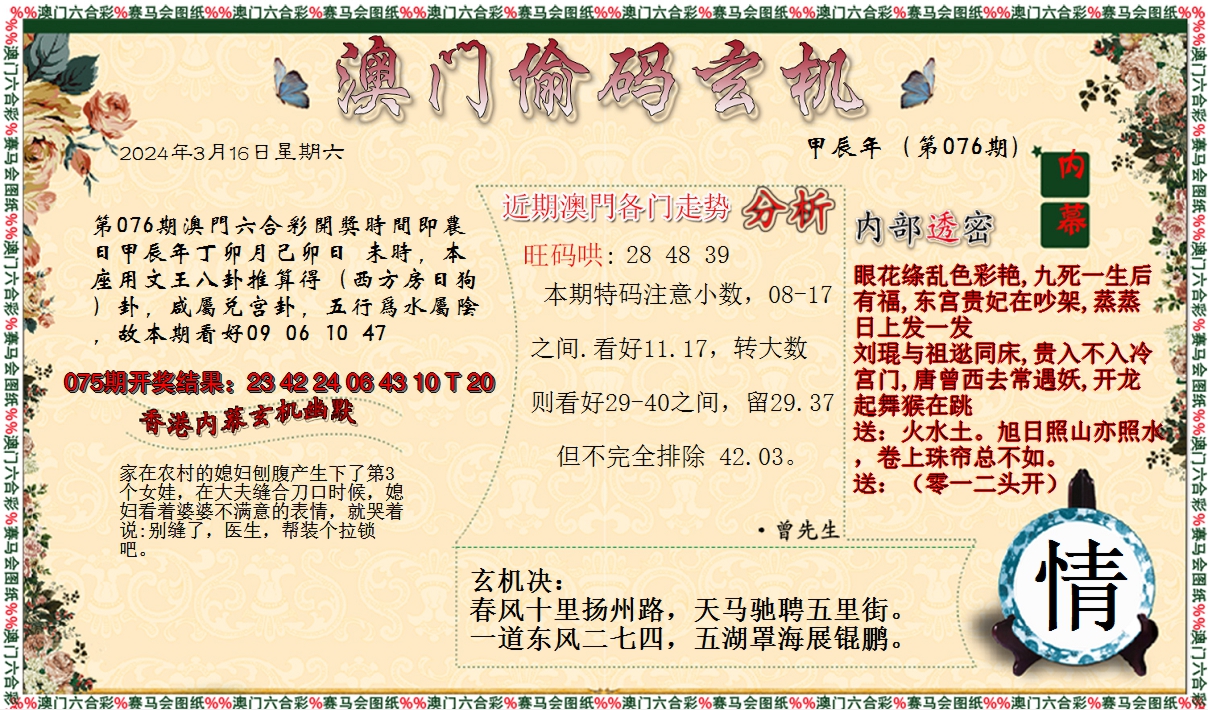 %%澳门六合彩%赛马会图纸%%澳门六合彩%赛马会图纸%%澳门六合彩%赛马会图纸%%澳门六合彩%赛马会图纸%%澳门六合彩%赛马会图纸%%澳门六合彩%赛马会图纸%%
澳门偷码玄机
2024年3月16日星期六
甲辰年（第076期）
内幕
第076期澳門六合彩開獎時間即農
日甲辰年丁卯月己卯日 未時，本
座用文王八卦推算得（西方房日狗
）卦，咸屬兑宫卦，五行爲水屬陰
，故本期看好09 06 10 47
075期开奖结果：23 42 24 06 43 10 T 20
香港内幕玄机幽默
家在农村的媳妇刨腹产生下了第3
个女娃，在大夫缝合刀口时候，媳
妇看着婆婆不满意的表情，就哭着
说:别缝了，医生，帮装个拉锁
吧。
近期澳門各门走势 分析
旺码哄: 28 48 39
本期特码注意小数，08-17
之间.看好11.17，转大数
则看好29-40之间，留29.37
但不完全排除 42.03。
·曾先生
内部透密
眼花缘乱色彩艳,九死一生后
有福,东宫贵妃在吵架,蒸蒸
日上发一发
刘琨与祖逖同床,贵入不入冷
宫门,唐曾西去常遇妖,开龙
起舞猴在跳
送：火水土。旭日照山亦照水
，卷上珠帘总不如。
送：（零一二头开）
玄机决：
春风十里扬州路，天马驰骋五里街。
一道东风二七四，五湖罩海展锟鹏。
情
%%澳门六合彩%赛马会图纸%%澳门六合彩%赛马会图纸%%澳门六合彩%赛马会图纸%%澳门六合彩%赛马会图纸%%澳门六合彩%赛马会图纸%%澳门六合彩%赛马会图纸%%